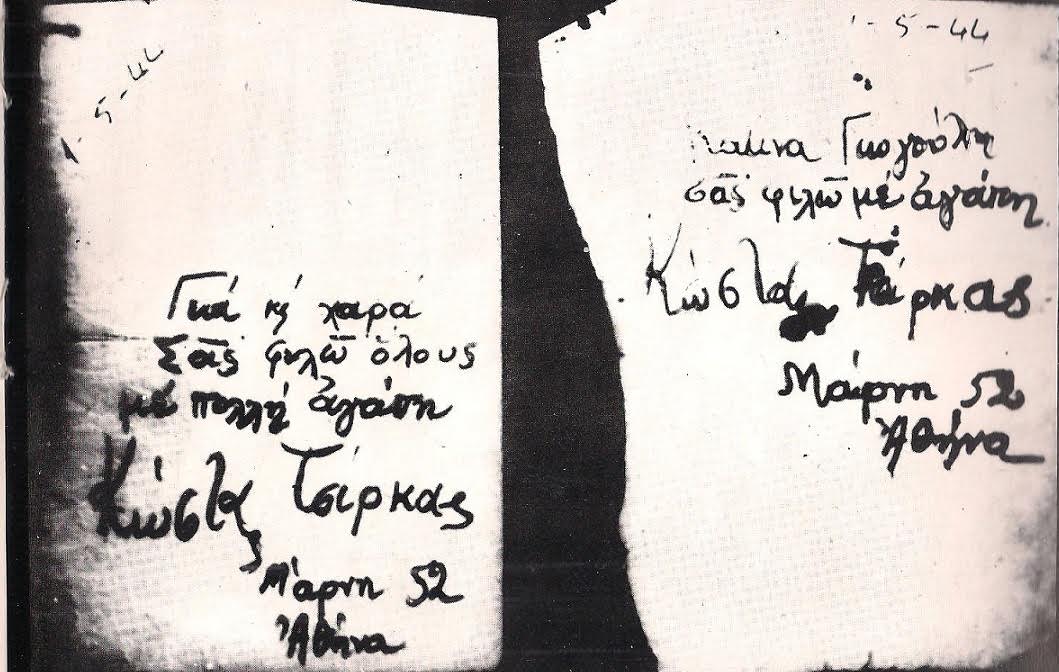 5-44
Γειά κι χαρά
Σᾶς φιλῶ ὅλους
μέ πολλή ἀγάπη
Κώστας Τσίρκας
Μάρνη 52
Ἀθήνα
-5-44
σᾶς φιλῶ μέ ἀγάπη
Κώστας Τσίρκας
Μάρνη 52
Ἀθήνα